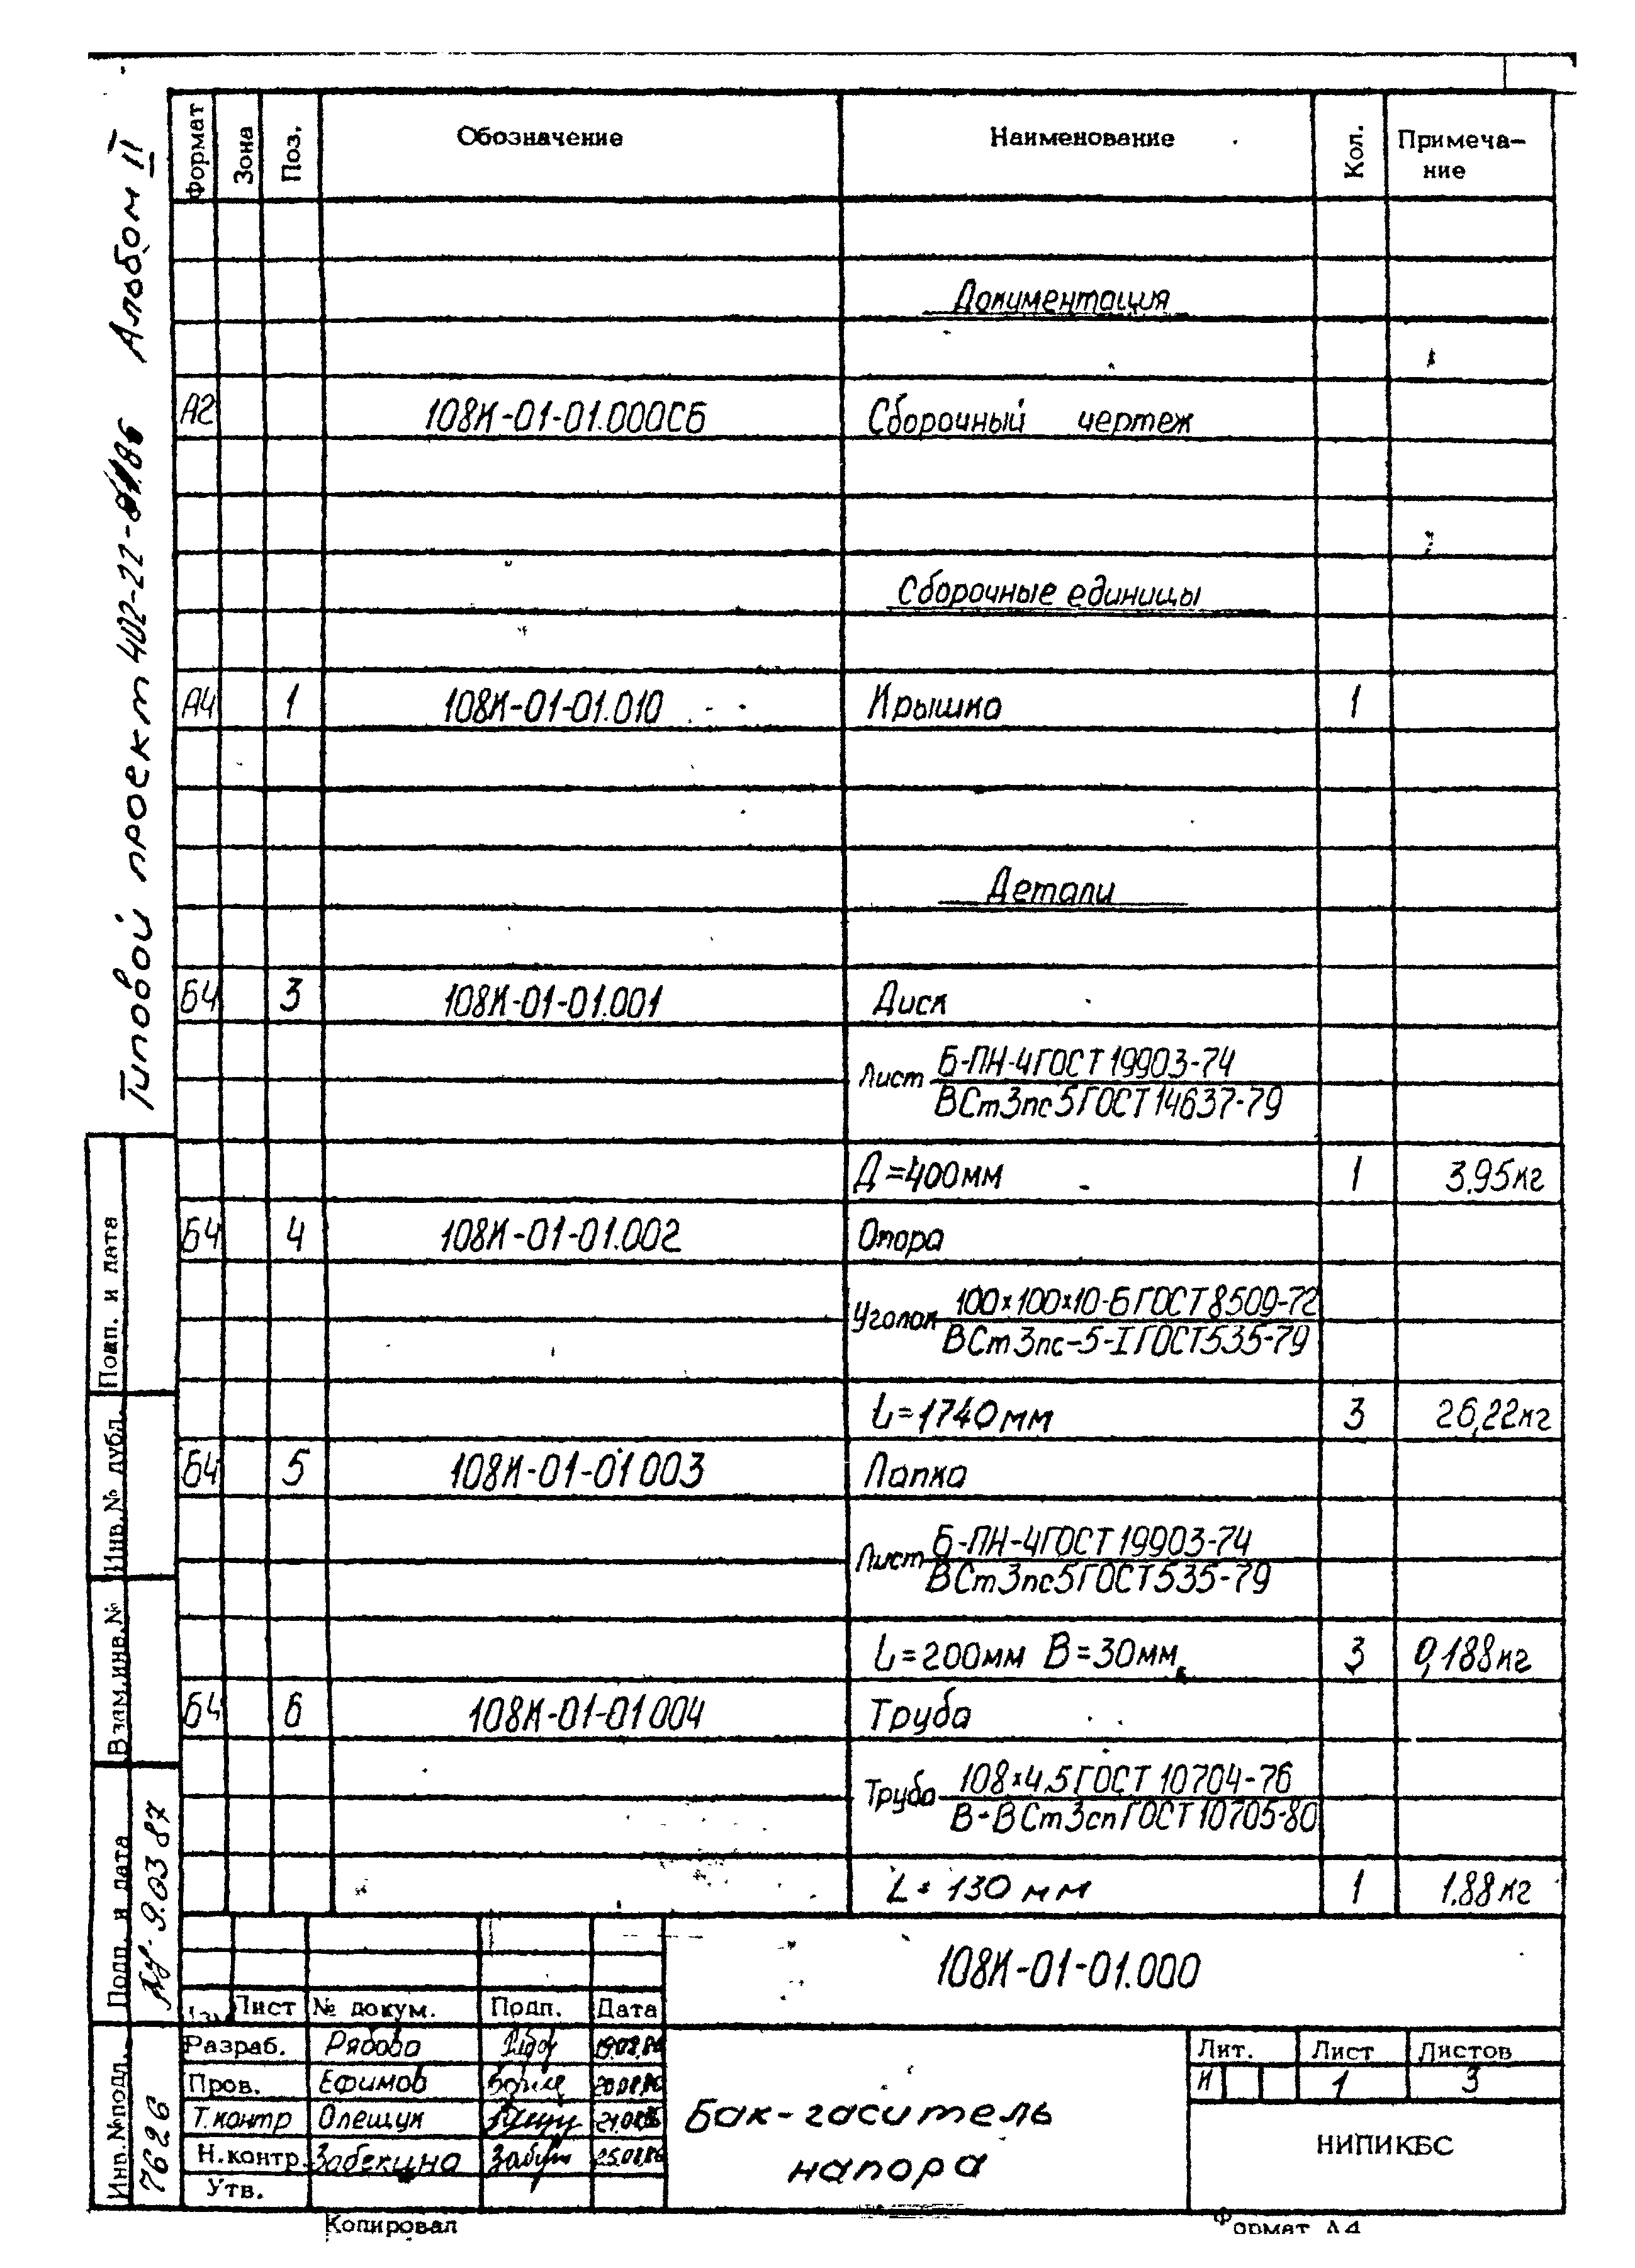 Типовой проект 402-22- Альбом II
Формат Зона Поз. Обозначение Наименование Кол. Примеча-
ние
Документация
А2 108К-01-01.000СБ Сборочный чертеж
Сборочные единицы
А4 1 108К-01-01.010 Крышка 1
Детали
Б4 3 108К-01-01.001 Диск
Б-ПН-4 ГОСТ 19903-74
Лист
ВСт3пс5 ГОСТ 14637-79
Д=400мм 1 3.95кг
Б4 4 108К-01-01.002 Опора
100х100х10-Б ГОСТ 8509-72
Уголок
ВСт3пс-5-I ГОСТ 535-79
L=1740мм 3 26,22кг
Б4 5 108К-01-01 003 Лапка
Б-ПН-4 ГОСТ 19903-74
Лист
ВСт3пс5 ГОСТ 535-79
L=200мм В=30мм 3 0,188кг
Б4 6 108К-01-01 004 Труба
108х4,5 ГОСТ 10704-76
Труба
В-ВСт3сп ГОСТ 10705-80
L=130мм 1 1,88кг
Подп. и дата
Инв.№ дубл.
Взам.инв.№
Подп. и дата 9.03 87
Инв.№подл. 7626
108К-01-01.000
Лист № докум. Подп. Дата
Разраб. Рябова
Пров. Ефимов
Т.контр Олещук
Н.контр. Забекина
Утв.
Бак-гаситель
напора
Лит. Лист Листов
И 1 3
НИПИКБС
Копировал Формат А4